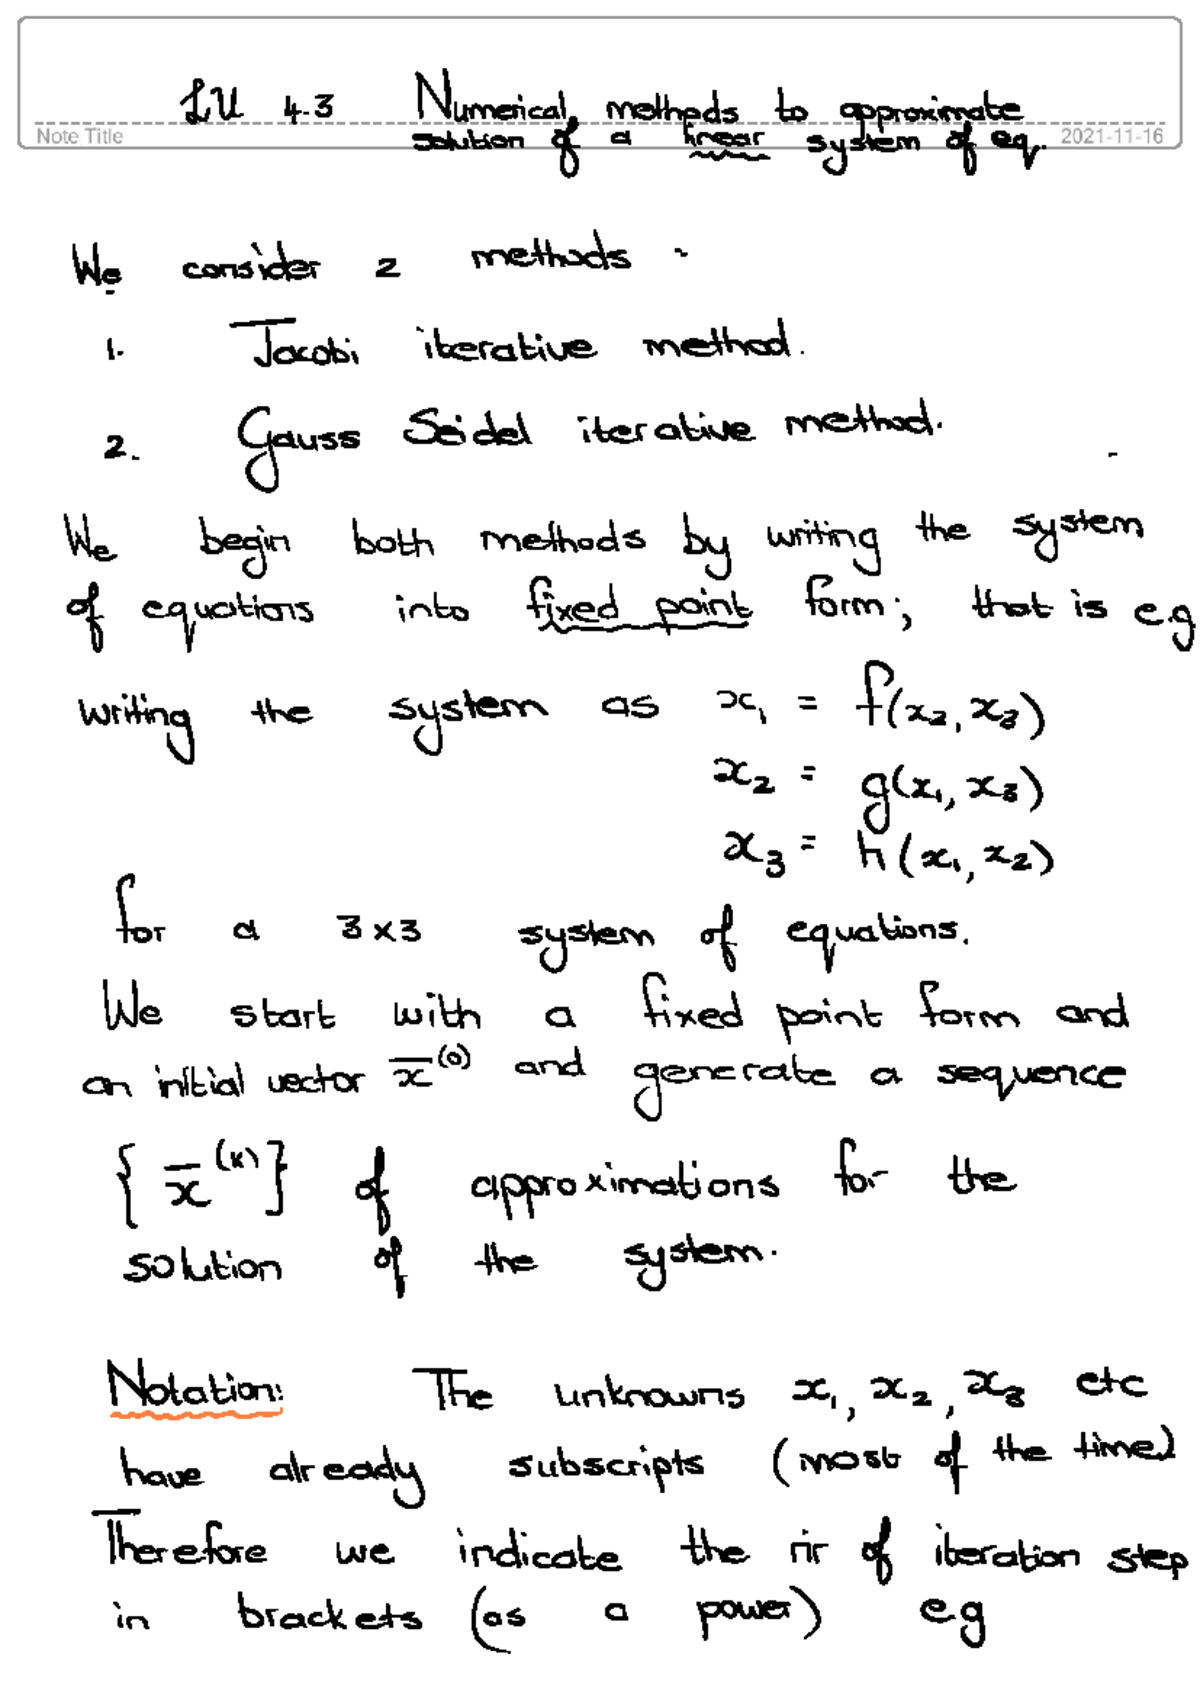 LU 4.3 Numerical methods to approximate
Note Title solution of a linear system of eq. 2021-11-16
We consider 2 methods :
1. Jacobi iterative method.
2. Gauss Seidel iterative method.
We begin both methods by writing the system
of equations into fixed point form; that is e.g
writing the system as x₁ = f(x₂, x₃)
x₂ = g(x₁, x₃)
x₃ = h(x₁, x₂)
for a 3x3 system of equations.
We start with a fixed point form and
an initial vector x̄⁽⁰⁾ and generate a sequence
{ x̄⁽ᵏ⁾ } of approximations for the
solution of the system.
Notation: The unknowns x₁, x₂, x₃ etc
have already subscripts (most of the time)
Therefore we indicate the nr of iteration step
in brackets (as a power) e.g